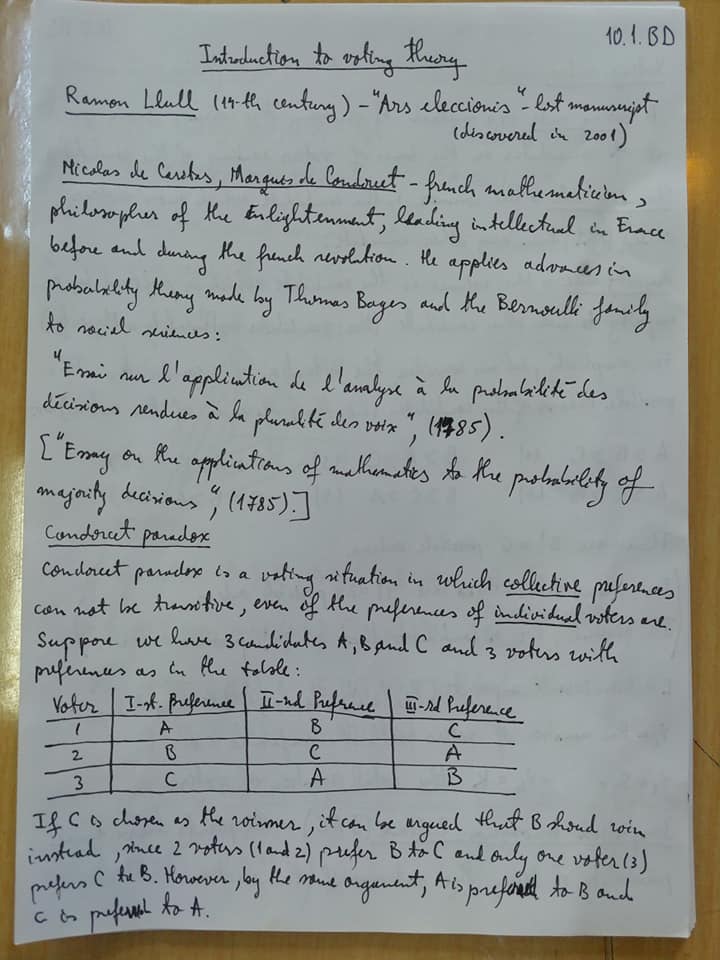 10.1.BD
Introduction to voting theory
Ramon Llull (14-th century) - "Ars eleccionis" - lost manuscript
(discovered in 2001)
Nicolas de Caritas, Marques de Condorcet - french mathematician,
philosopher of the Enlightenment, leading intellectual in France
before and during the french revolution. He applies advances in
probability theory made by Thomas Bayes and the Bernoulli family
to social sciences:
"Essai sur l'application de l'analyse à la probabilité des
décisions rendues à la pluralité des voix", (1785).
["Essay on the applications of mathematics to the probability of
majority decisions", (1785).]
Condorcet paradox
Condorcet paradox is a voting situation in which collective preferences
can not be transitive, even if the preferences of individual voters are.
Suppose we have 3 candidates A, B and C and 3 voters with
preferences as in the table:
Voter | I-st. Preference | II-nd Preference | III-rd Preference
1 | A | B | C
2 | B | C | A
3 | C | A | B
If C is chosen as the winner, it can be argued that B shoud win
instead, since 2 voters (1 and 2) prefer B to C and only one voter (3)
prefers C to B. However, by the same argument, A is preferred to B and
C is preferred to A.